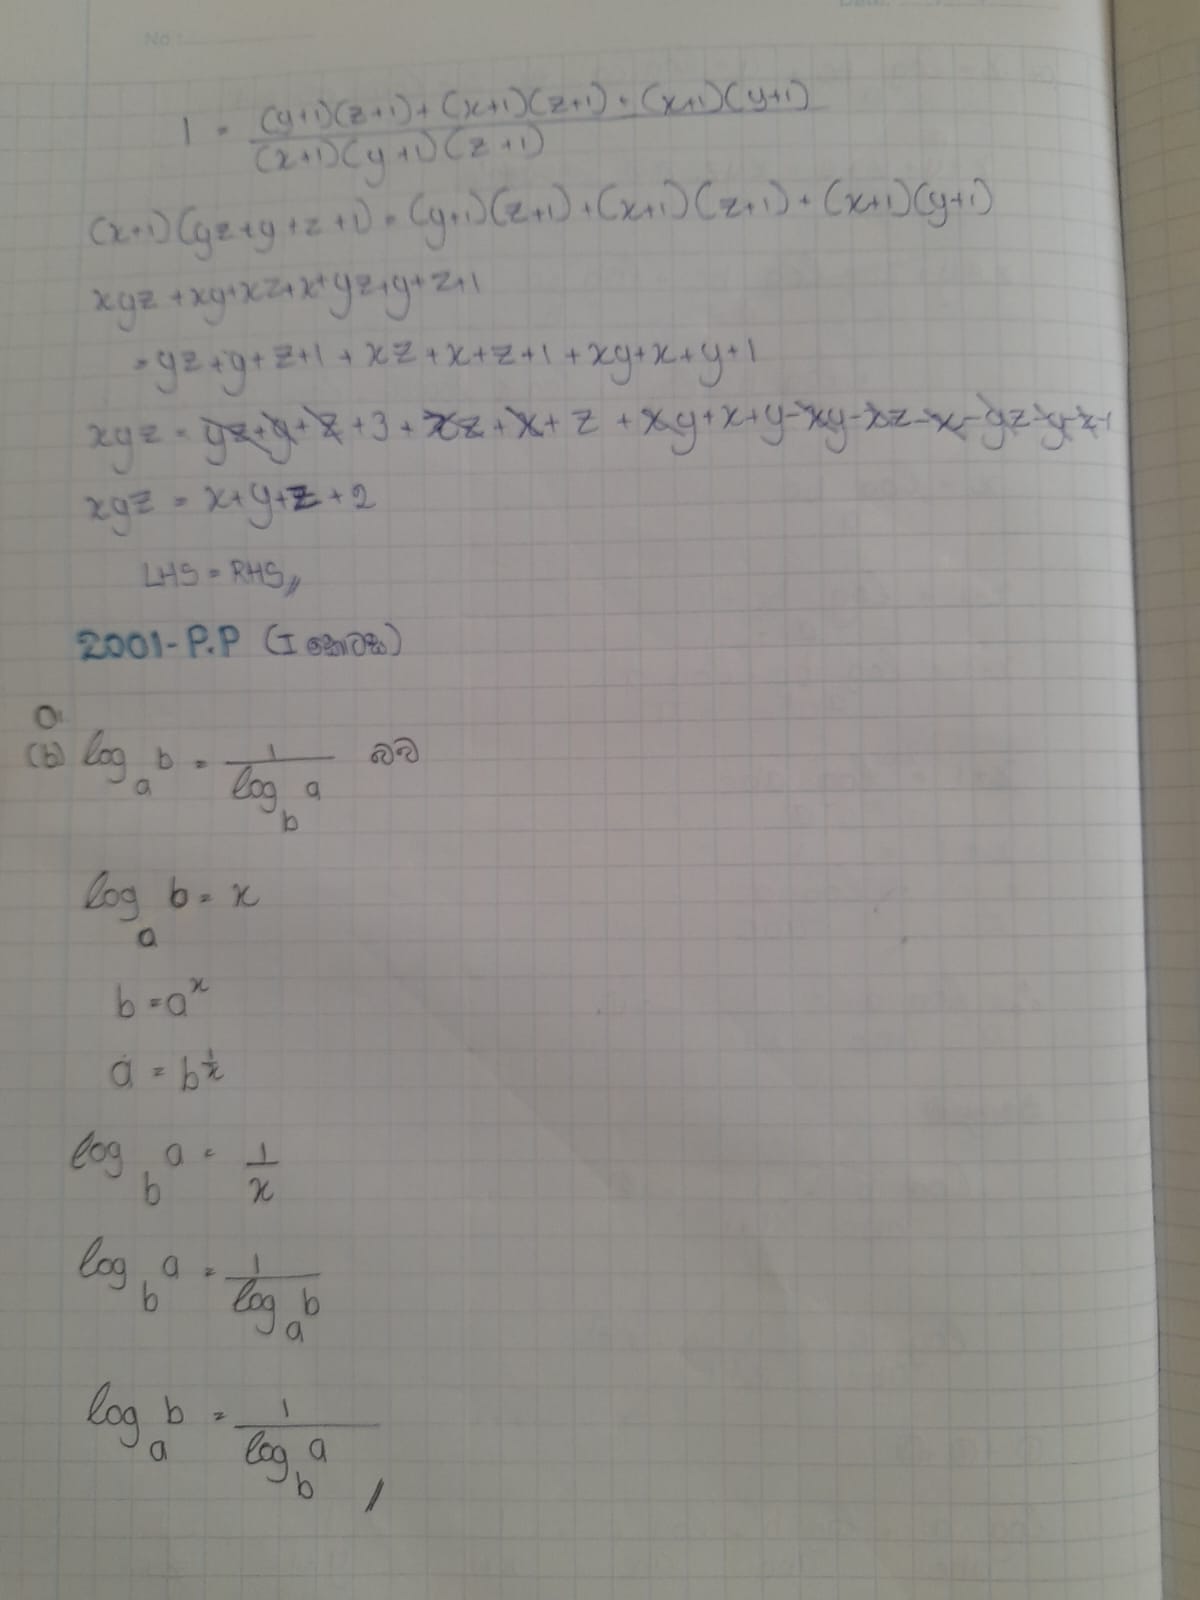 No :
1 = (y+1)(z+1) + (x+1)(z+1) + (x+1)(y+1) / (x+1)(y+1)(z+1)
(x+1)(yz+y+z+1) = (y+1)(z+1) + (x+1)(z+1) + (x+1)(y+1)
xyz + xy+xz+x+yz+y+z+1
= yz+y+z+1 + xz+x+z+1 + xy+x+y+1
xyz = yz+y+z+3+xz+x+z+xy+x+y-xy-xz-x-yz-y-z-1
xyz = x+y+z+2
LHS = RHS //
2001-P.P (I කොටස)
(b) log_a b = 1 / log_b a බව
log_a b = x
b = a^x
a = b^(1/x)
log_b a = 1/x
log_b a = 1 / log_a b
log_a b = 1 / log_b a /